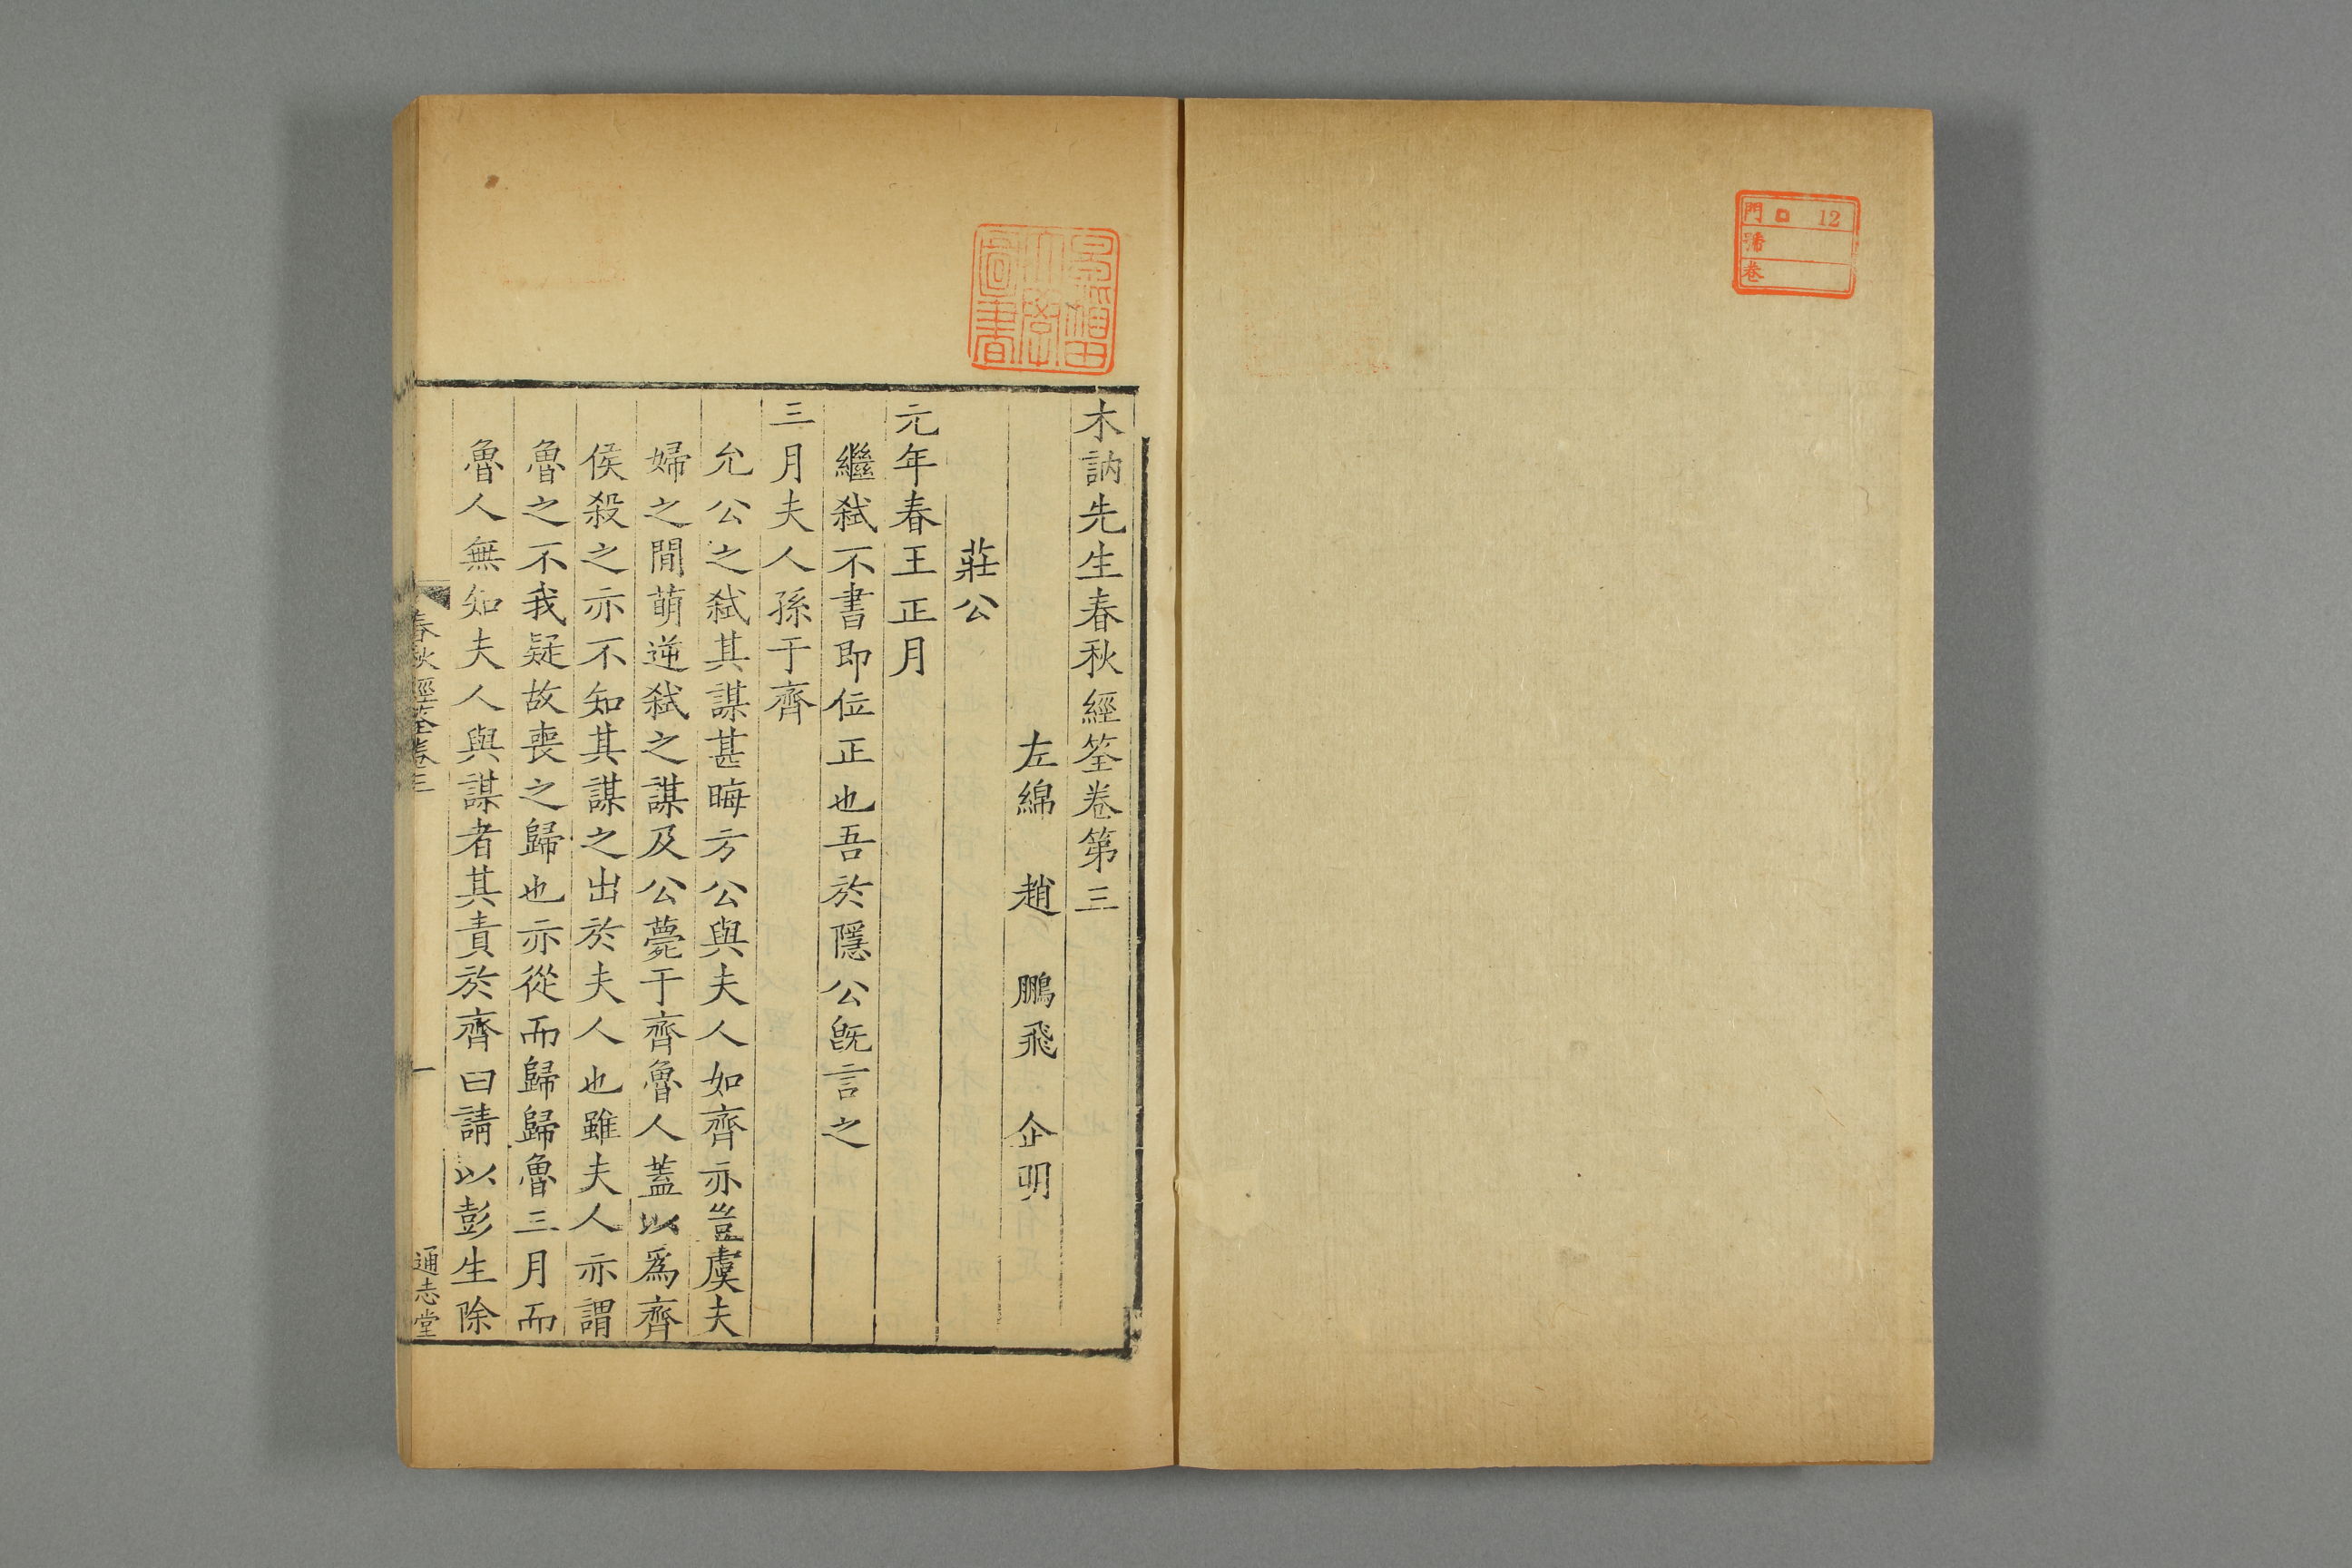 門 口 12
號
卷
早稲田
大學
圖書
木訥先生春秋經筌卷第三
左綿 趙 鵬飛 企明
莊公
元年春王正月
繼弑不書即位正也吾於隱公旣言之
三月夫人孫于齊
允公之弑其謀甚晦方公與夫人如齊亦豈虞夫
婦之閒萌逆弑之謀及公薨于齊魯人蓋以爲齊
侯殺之亦不知其謀之出於夫人也雖夫人亦謂
魯之不我疑故喪之歸也亦從而歸歸魯三月而
魯人無知夫人與謀者其責於齊曰請以彭生除
春秋經筌卷三
一
通志堂